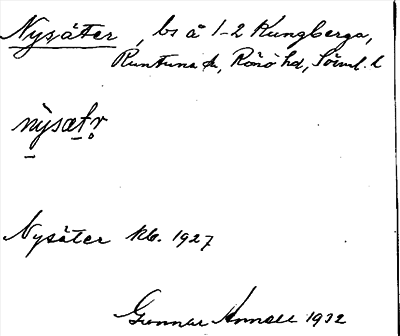 Nysäter, bs å 1-2 Kungberga,
Runtuna sn, Rönö hd, Sörml. l
nysætr
Nysäter kb. 1927
Gunnar 1932